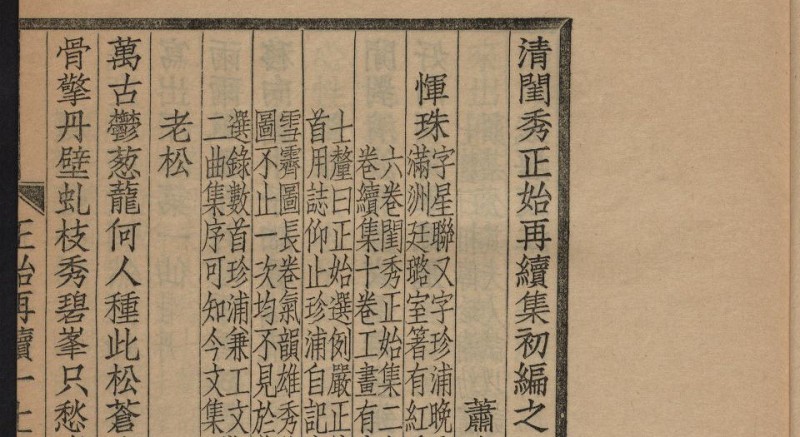 清閨秀正始再續集初編之
蕭
惲珠
字星聯又字珍浦晚
滿洲廷璐室著有紅
六卷閨秀正始集二
卷續集十卷工畫有
士釐曰正始選例嚴正
首用誌仰止珍浦自記
雪霽圖長卷氣韻雄秀
圖不止一次均不見於
選錄數首珍浦兼工文
二曲集序可知今文集
老松
萬古鬱葱蘢何人種此松蒼
骨擎丹壁虬枝秀碧峯只愁
正始再續一上